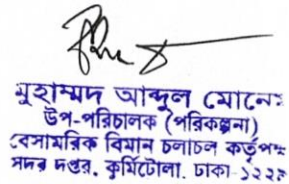 মুহাম্মদ আব্দুল মোনে
উপ-পরিচালক (পরিকল্পনা)
বেসামরিক বিমান চলাচল কর্তৃপক্ষ
সদর দপ্তর, কুর্মিটোলা, ঢাকা-১২২৯